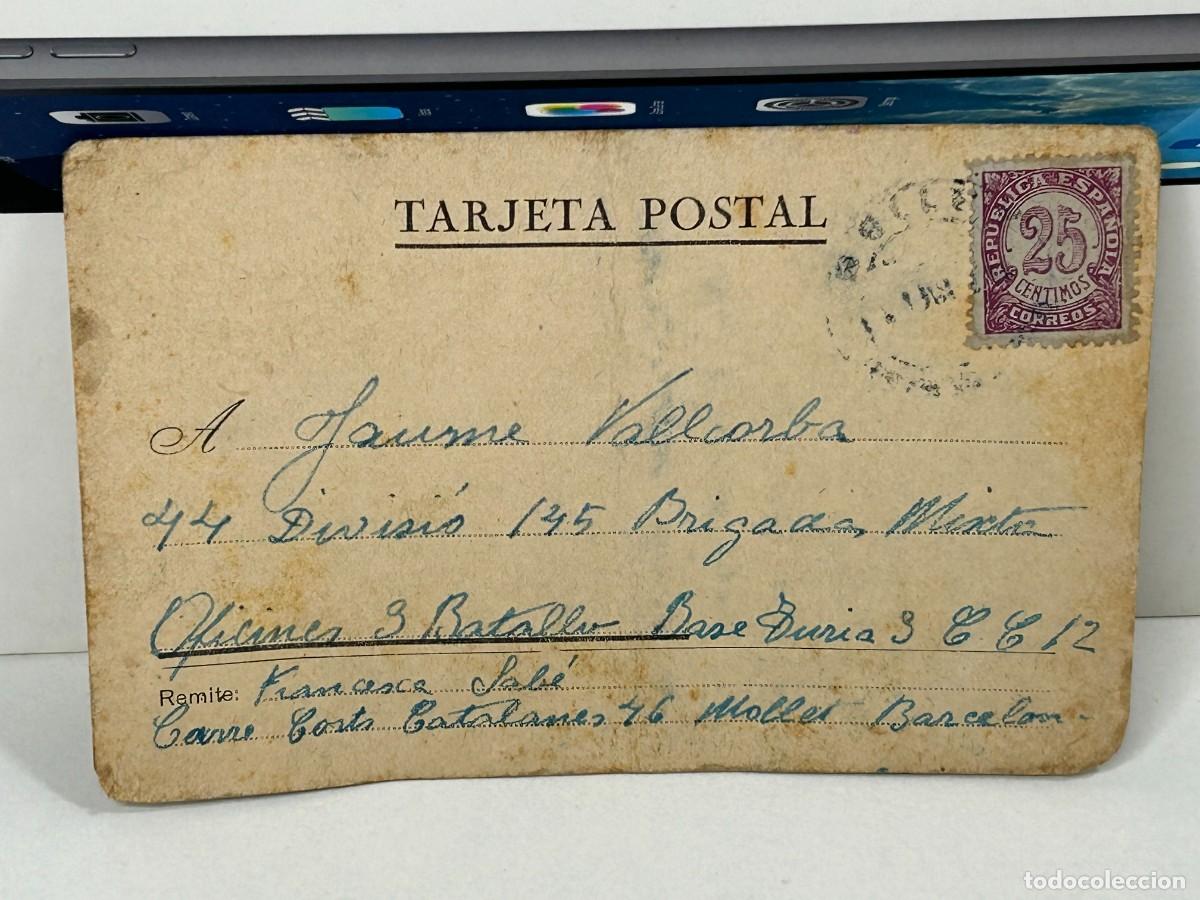 TARJETA POSTAL
REPUBLICA ESPAÑOLA
25
CENTIMOS
CORREOS
A Jaume Vallcorba
44 Divisió 145 Brigada Mixta
Oficines 3 Batallo Base Turia 3 C C 12
Remite: Francesca Sabé
Carre Corts Catalanes 46 Mollet Barcelon
todocoleccion